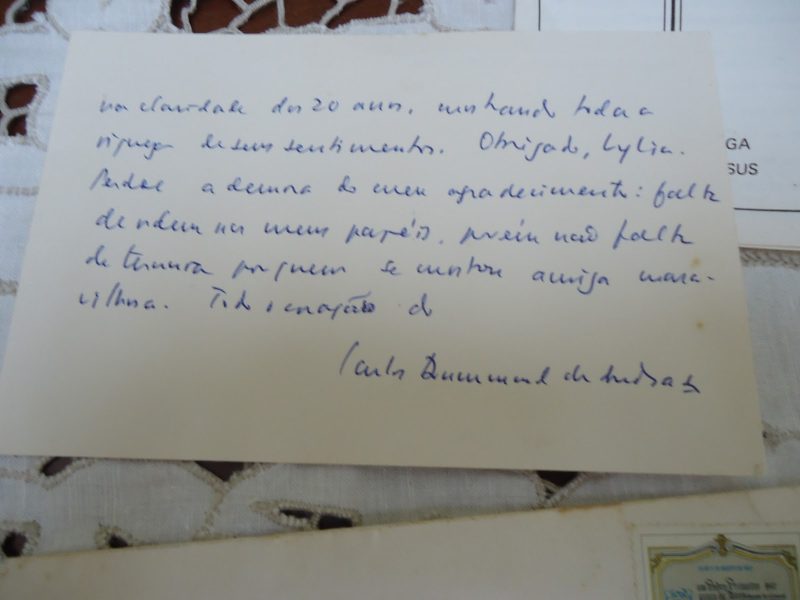 na claridade dos 20 anos, mostrando toda a
riqueza de seus sentimentos. Obrigado, Lylia.
Perdoe a demora do meu agradecimento: falta
de ordem nos meus papéis, porém não falta
de ternura por quem se mostrou amiga mara-
vilhosa. Todo o coração do
Carlos Drummond de Andrade
GA
SUS